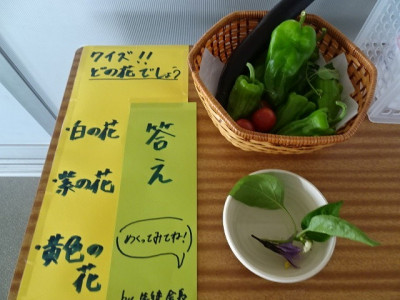 クイズ!!
どの花でしょう?
・白の花
・紫の花
・黄色の花
答え
めくってみてね!
by